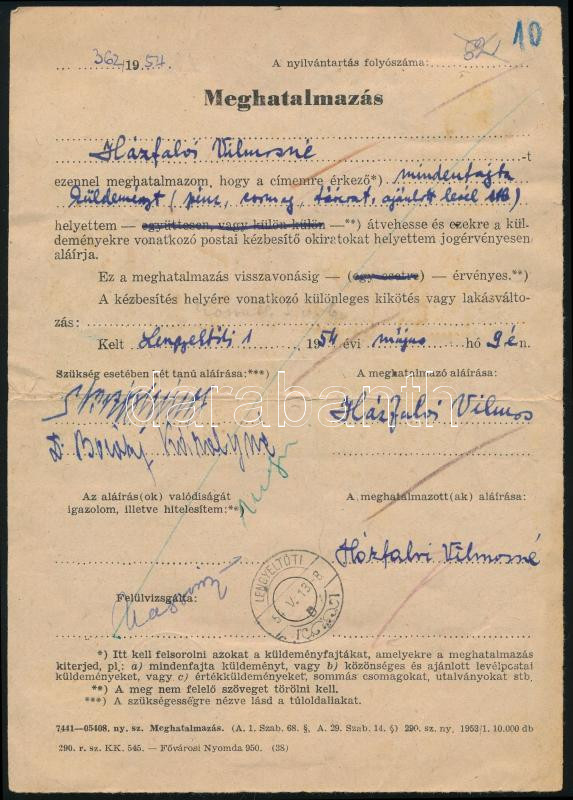 362/1954.
A nyilvántartás folyószáma: 52/
10
Meghatalmazás
Házfalvi Vilmosné -t
ezennel meghatalmazom, hogy a címemre érkező*) mindenfajta
küldeményt (pénz, csomag, távirat, ajánlott levél stb)
helyettem — együttesen, vagy külön-külön —**) átvehesse és ezekre a kül-
deményekre vonatkozó postai kézbesítő okiratokat helyettem jogérvényesen
aláírja.
Ez a meghatalmazás visszavonásig — (egy esetre) — érvényes.**)
A kézbesítés helyére vonatkozó különleges kikötés vagy lakásválto-
zás:
Kelt Lengyeltóti, 1954 évi május hó 9én.
Szükség esetében két tanú aláírása:***)
A meghatalmazó aláírása:
Házfalvi Vilmos
Dr. Károlyné
Az aláírás(ok) valódiságát
igazolom, illetve hitelesítem:**)
A meghatalmazott(ak) aláírása:
Házfalvi Vilmosné
LENGYELTÓTI
54 V. 13
Felülvizsgálta:
*) Itt kell felsorolni azokat a küldeményfajtákat, amelyekre a meghatalmazás
kiterjed, pl.: a) mindenfajta küldeményt, vagy b) közönséges és ajánlott levélpostai
küldeményeket, vagy c) értékküldeményeket, sommás csomagokat, utalványokat stb.
**) A meg nem felelő szöveget törölni kell.
***) A szükségességre nézve lásd a túloldaliakat.
7441—05408. ny. sz. Meghatalmazás. (A. 1. Szab. 68. §, A 29. Szab. 14. §) 290. sz. ny. 1953/1. 10.000 db
290. r. sz. KK. 545. — Fővárosi Nyomda 950. (38)
darabanth.com